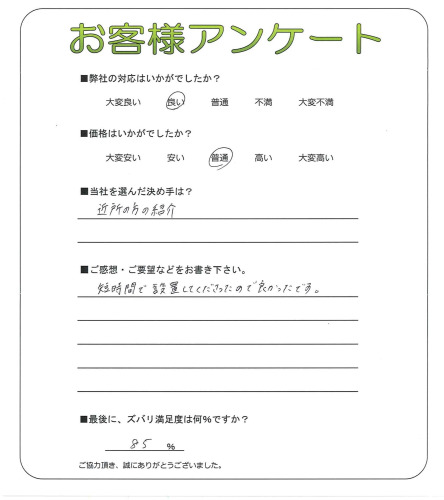 お客様アンケート
■弊社の対応はいかがでしたか？
大変良い 良い 普通 不満 大変不満
■価格はいかがでしたか？
大変安い 安い 普通 高い 大変高い
■当社を選んだ決め手は？
近所の方の紹介
■ご感想・ご要望などをお書き下さい。
短時間で設置してくださったので良かったです。
■最後に、ズバリ満足度は何％ですか？
85 ％
ご協力頂き、誠にありがとうございました。